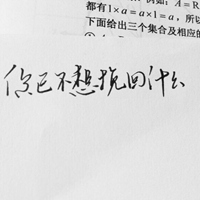 例如，A=R
都有1×a=a×1=a，所以
下面给出三个集合及相应的
你已不想挽回什么